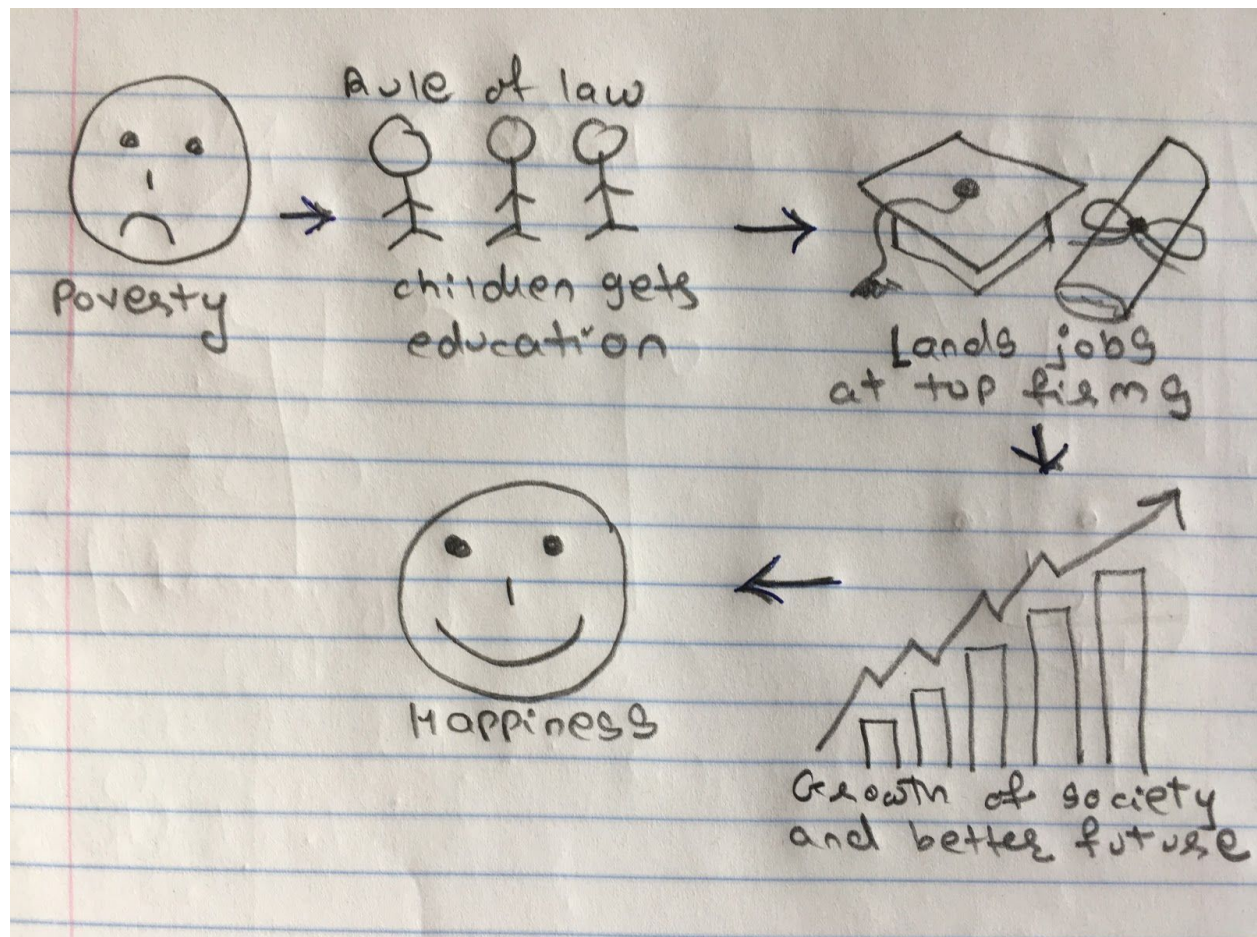 Rule of law
Poverty
children gets
education
Lands jobs
at top firms
Happiness
Growth of society
and better future